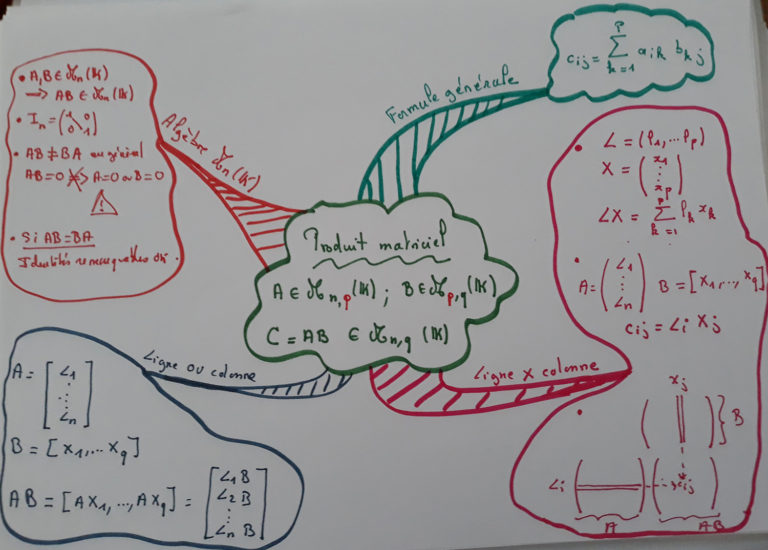 Produit matriciel
A ∈ ℳn,p(𝕂) ; B ∈ ℳp,q(𝕂)
C = AB ∈ ℳn,q (𝕂)
Formule générale
cij = ∑ᵖₖ₌₁ aik bkj
Algèbre ℳn(𝕂)
• A,B ∈ ℳn(𝕂)
⟹ AB ∈ ℳn(𝕂)
• In = (1 0
0 1)
• AB ≠ BA en général
AB=0 ⇏ A=0 ou B=0
!
• Si AB=BA
Identités remarquables ok.
Ligne × colonne
• L = (l1,... lp)
X = (x1
⋮
xp)
LX = ∑ᵖₖ₌₁ lk xk
• A = (L1
⋮
Ln) B = [X1,..., Xq]
cij = Li Xj
•
Xj
B
Li
cij
A
AB
Ligne ou colonne
A = [L1
⋮
Ln]
B = [X1,... Xq]
AB = [AX1,..., AXq] = [L1 B
L2 B
⋮
Ln B]